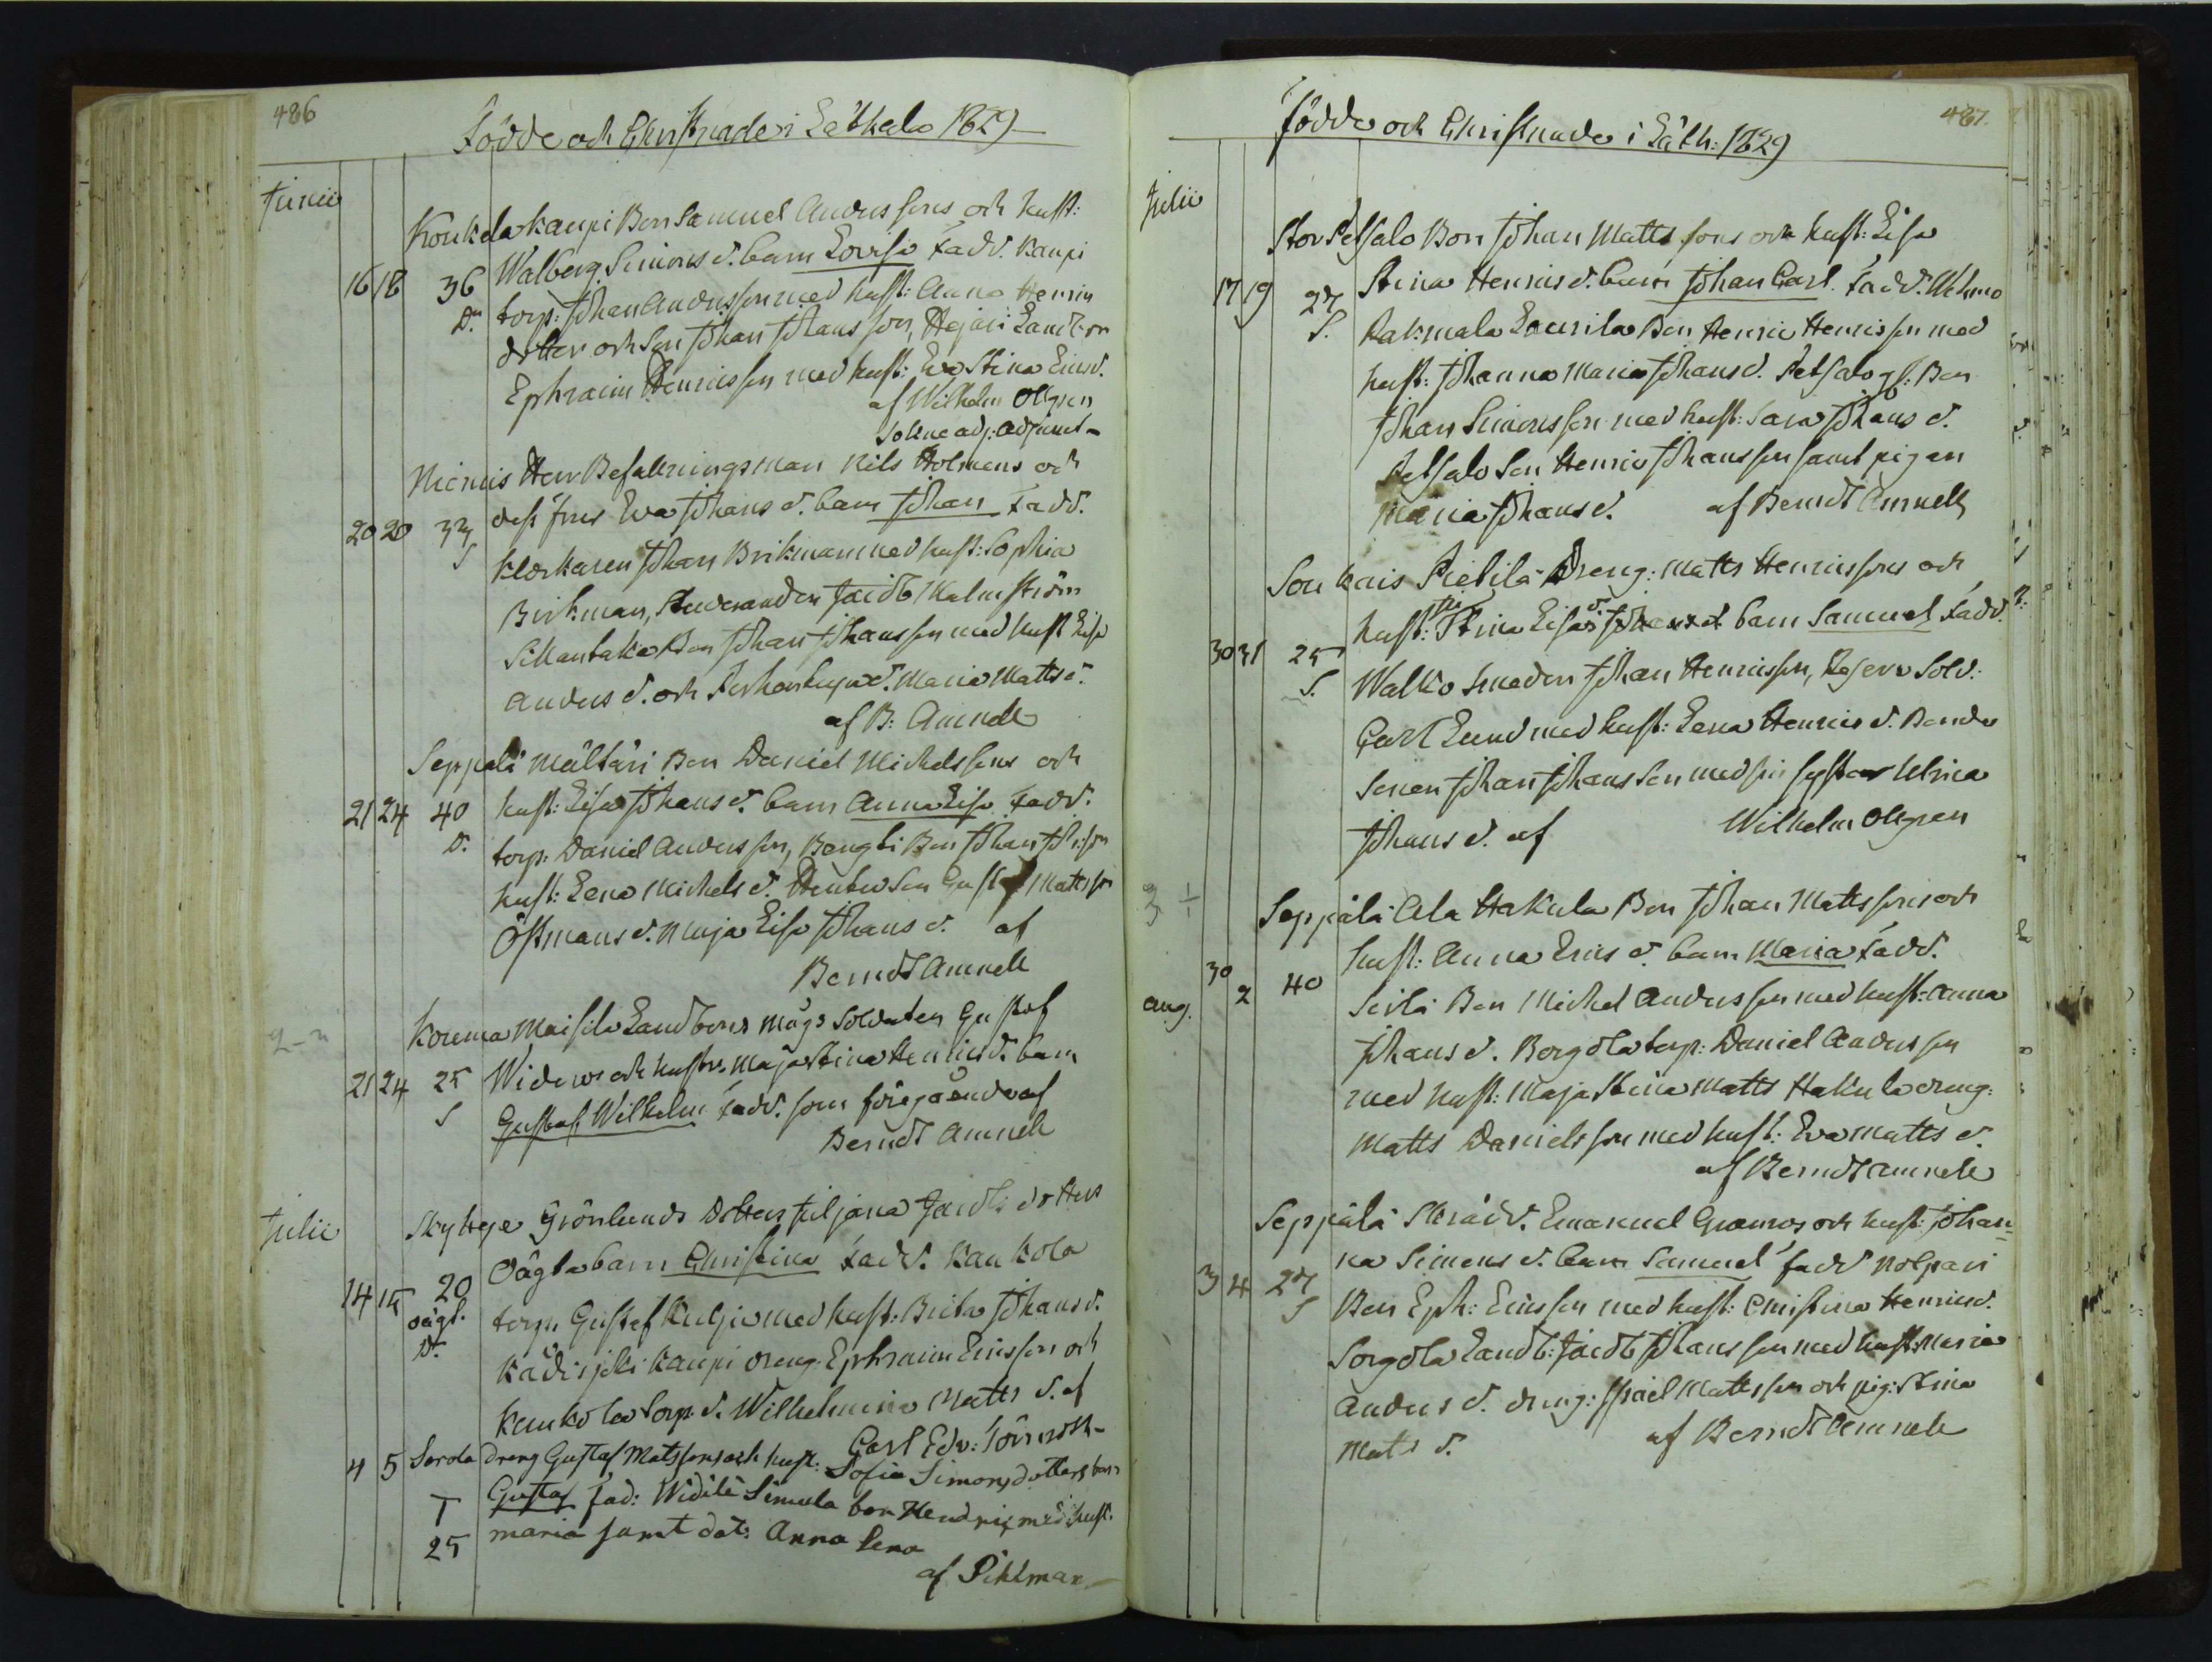 486
Födde och Christnade i Lätkalo 1829
Junii
Konkela Kaupi Bon Samuel Anderssons och hust:
Walborg Simons d. barn Lovisa Fadd. Kaupi
16 18 36 torp: Johan Andersson med hust: Anna Henrics
Dr. dotter och Son Johan Johansson, Hejari Landbon
Ephraim Henricsson med hust: Eva Stina Ericsd.
af Wilhelm Ollgren
Sokne adj: Adjunct
Niemis Herr Befallningsman Nils Holmens och
dess frus Eva Johans d. barn Johan Fadd.
20 20 33 Klockaren Johan Brikman med hust: Sophia
S Birkman, Studeranden Jacob Malmström
Sillantaka Bon Johan Johansson med hust Lisa
Anders d. och Maria Matts d.
af B: Amnell
Seppälä Mältäri Bon Daniel Michelssons och
21 24 40 hust: Lisa Johans d. barn Anna Lisa Fadd.
D. torp: Daniel Andersson, Bengti Bon Johan Joh:son
hust: Lena Michels d. Son Gustaf Mattsson
Östmans d. Maja Lisa Johans d. af
Berndt Amnell
Kouma Maisila Landbons Mågs Soldaten Gustaf
21 24 25 Widars och hustr. Maja Stina Henrics d. barn
S Gustaf Wilhelm Fadd. som föregående af
Berndt Amnell
Julii
Skyttye Grönlunds Dotter Juljana Jacobs dotters
14 15 20 Oägta barn Christina Fadd. Kankola
oägt. torp. Gustaf med hust: Brita Johans d.
Dr. Kädisjoki Kaupi dreng: Ephraim Ericsson och
Kankola torp. d. Wilhelmina Matts d. af
Carl Edv: Törnroth
4 5 Sorola Dreng Gustaf Matssons och hust: Sofia Simonsdotters barn
T Gustaf fad: Widilä Simula bon Hendric med hust.
25 maria samt dot: Anna Lena
af Pihlman
487.
Födde och Christnade i Läth: 1829
Julii
Stor Petsalo Bon Johan Matts sons och hust: Lisa
17 19 27 Stina Henrics d. barn Johan Carl Fadd: Wehmo
S. Rakmala Laurila Bon Henric Henricsson med
hust: Johanna Maria Johans d. Petsalo gl: Bon
Johan Simonsson med hust: Sara Johans d.
Petsalo Son Henric Johansson samt pigan
Maria Johans d. af Berndt Amnell
Soukais Pietilä Dreng: Matts Henricssons och
hust: Stina Lisa Johans d barn Samuel Fadd.
30 31 25 Walko Smeden Johan Henricsson, Reserv Sold.
S. Carl Lund med hust: Lena Henrics d. Bonde
Sonen Johan Johansson med sin syster Ulrica
Johans d. af Wilhelm Ollgren
Seppälä Ala Hakula Bon Johan Mattssons och
hust: Anna Erics d. barn Maria Fadd.
30
Aug. 2 40 Seilä Bon Michel Andersson med hust: Anna
Johans d. Borgola torp: Daniel Andersson
med hust: Maja Stina Matts Hakula dreng:
Matts Danielsson med hust: Eva Matts d.
af Berndt Amnell
Seppälä Skrädd. Emanuel Granros och hust: Johan
na Simons d. barn Samuel fadd Nolpari
3 4 27 Bon Eph: Ericsson med hust: Christina Henricsd.
S Sorgola Landb: Jacob Johansson med hust: Maria
Anders d. dreng: Israel Mattsson och pig: Stina
Matts d. af Berndt Amnell